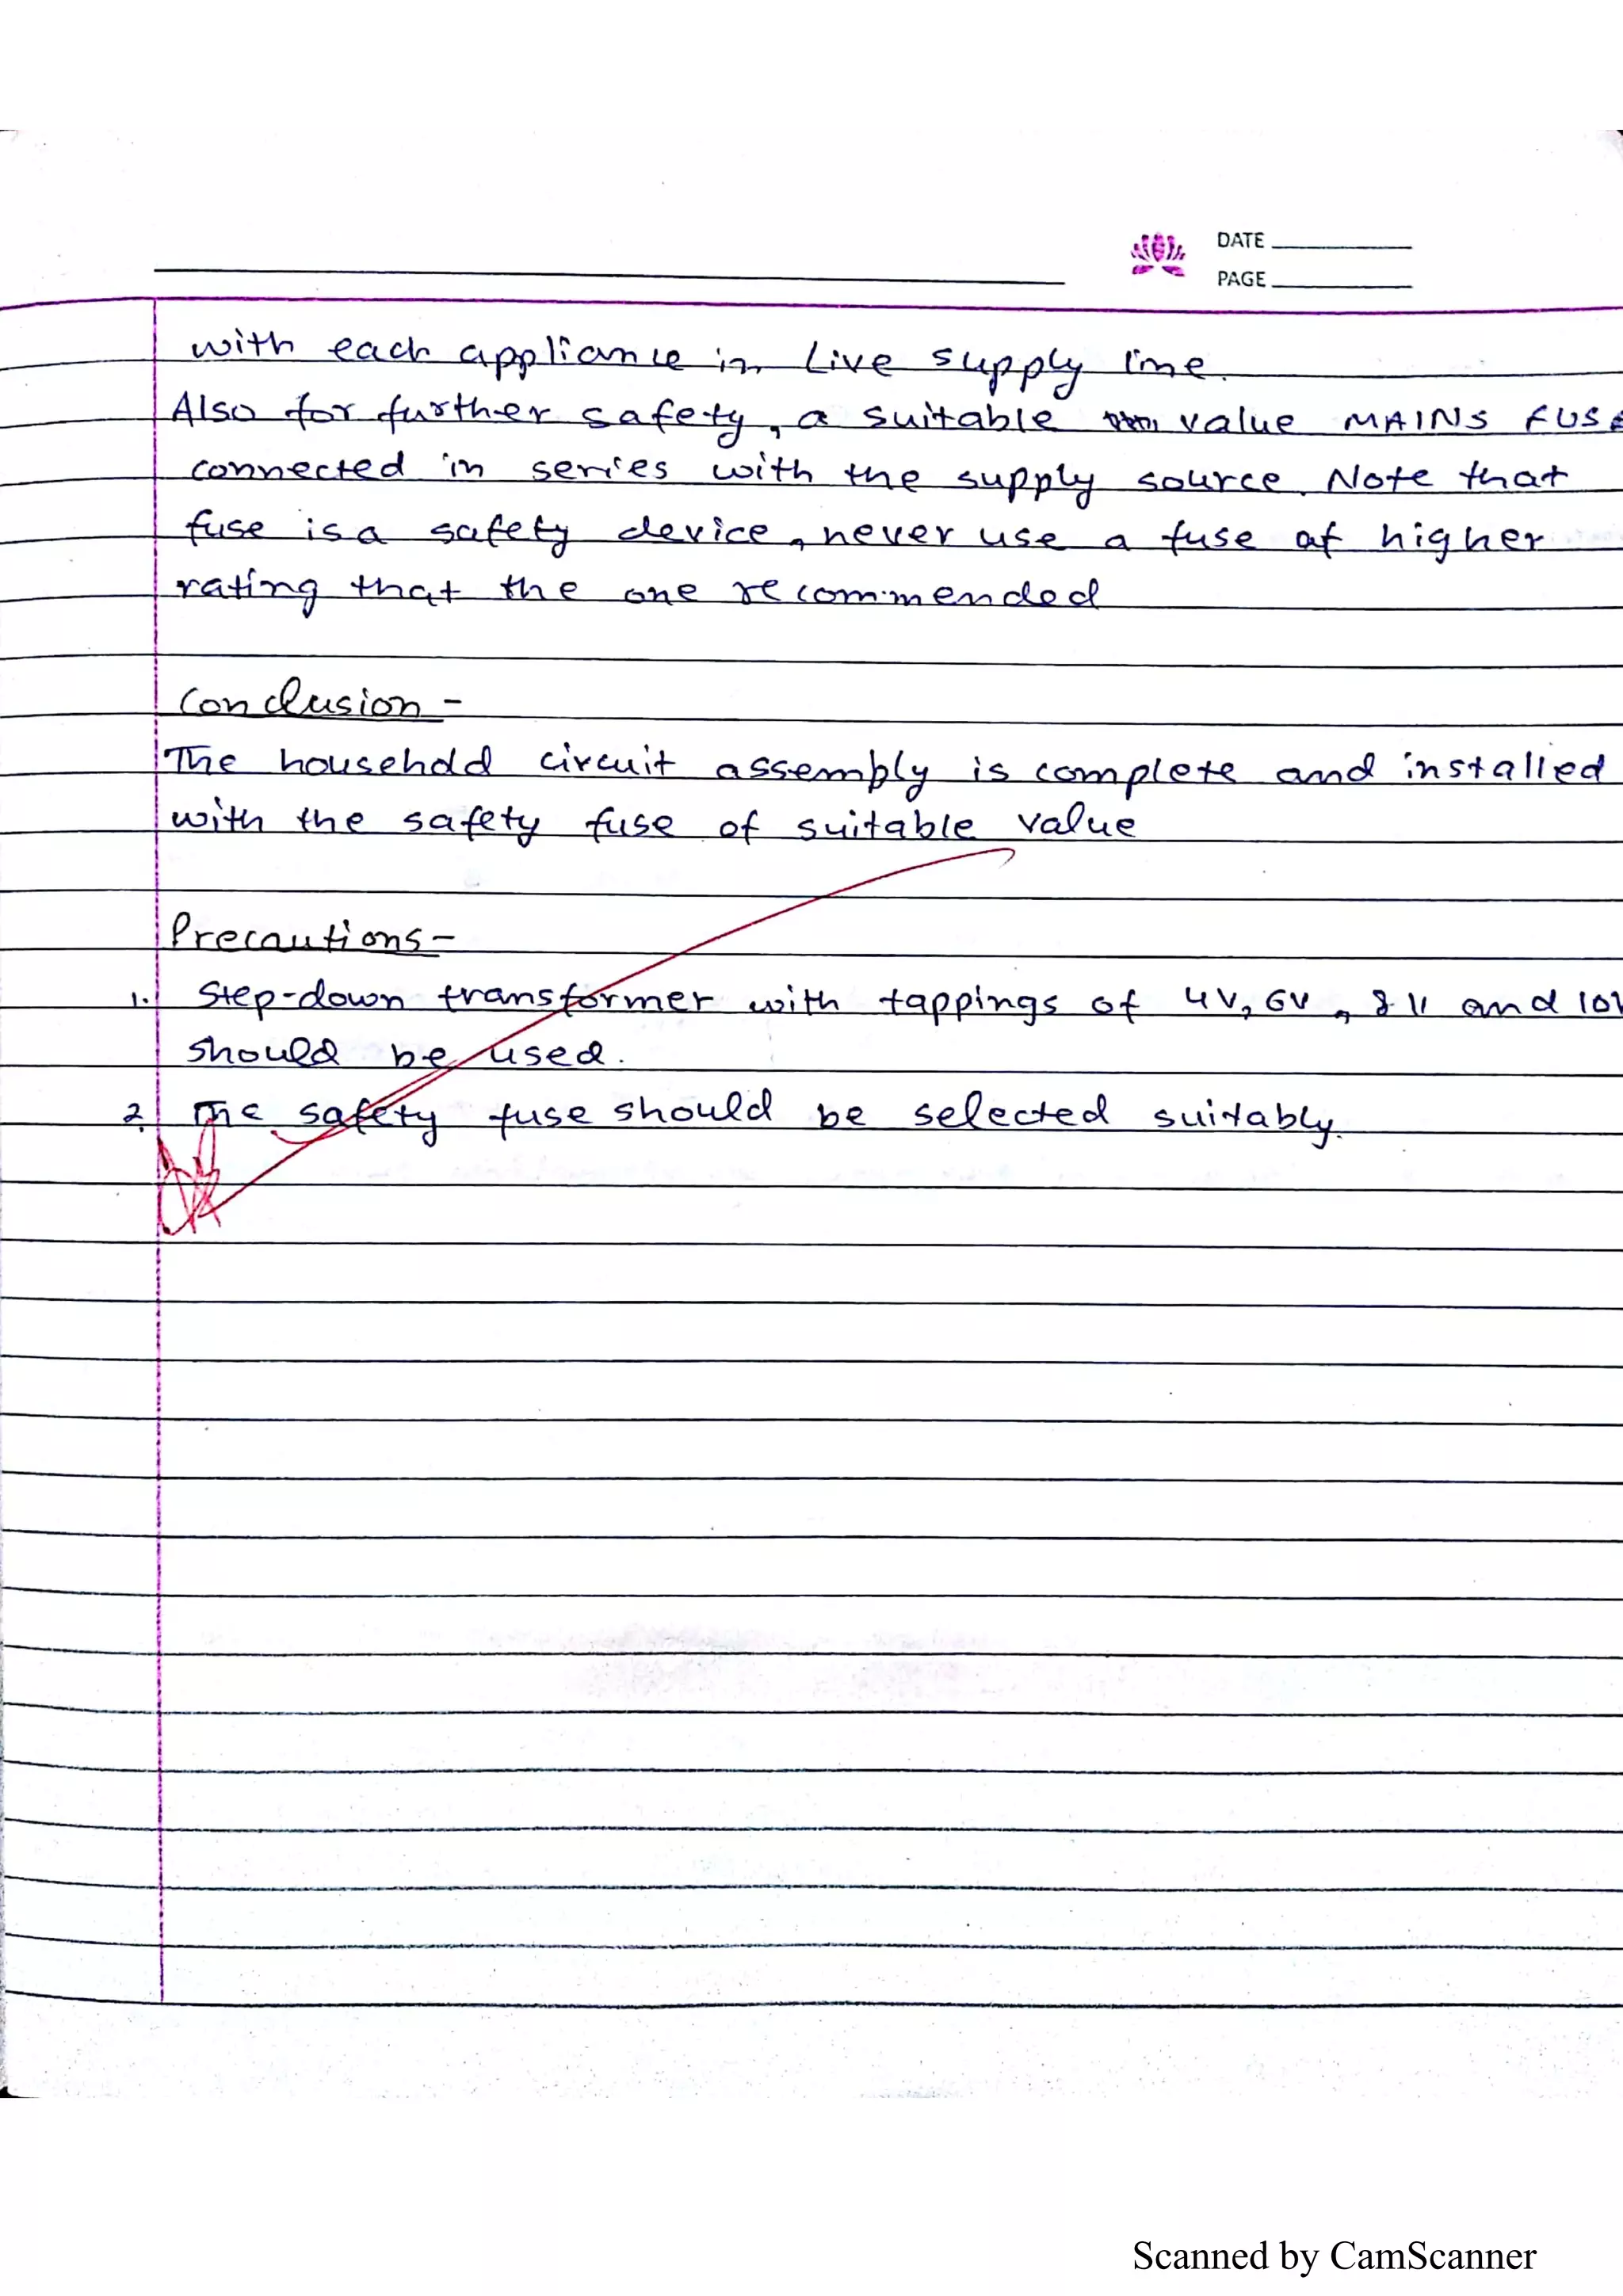 DATE
PAGE
with each appliance in Live supply line.
Also for further safety, a suitable value MAINS FUSE
connected in series with the supply source. Note that
fuse is a safety device, never use a fuse of higher
rating that the one recommended
Conclusion -
The household circuit assembly is complete and installed
with the safety fuse of suitable value
Precautions -
1. Step-down transformer with tappings of 4V, 6V, 8V and 10V
should be used.
2. The safety fuse should be selected suitably.
Scanned by CamScanner